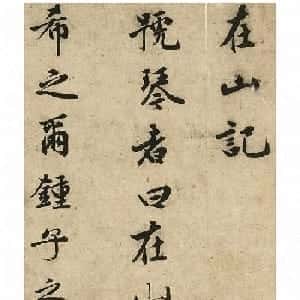 在山記
號琴者曰在山
希之爾鍾子之